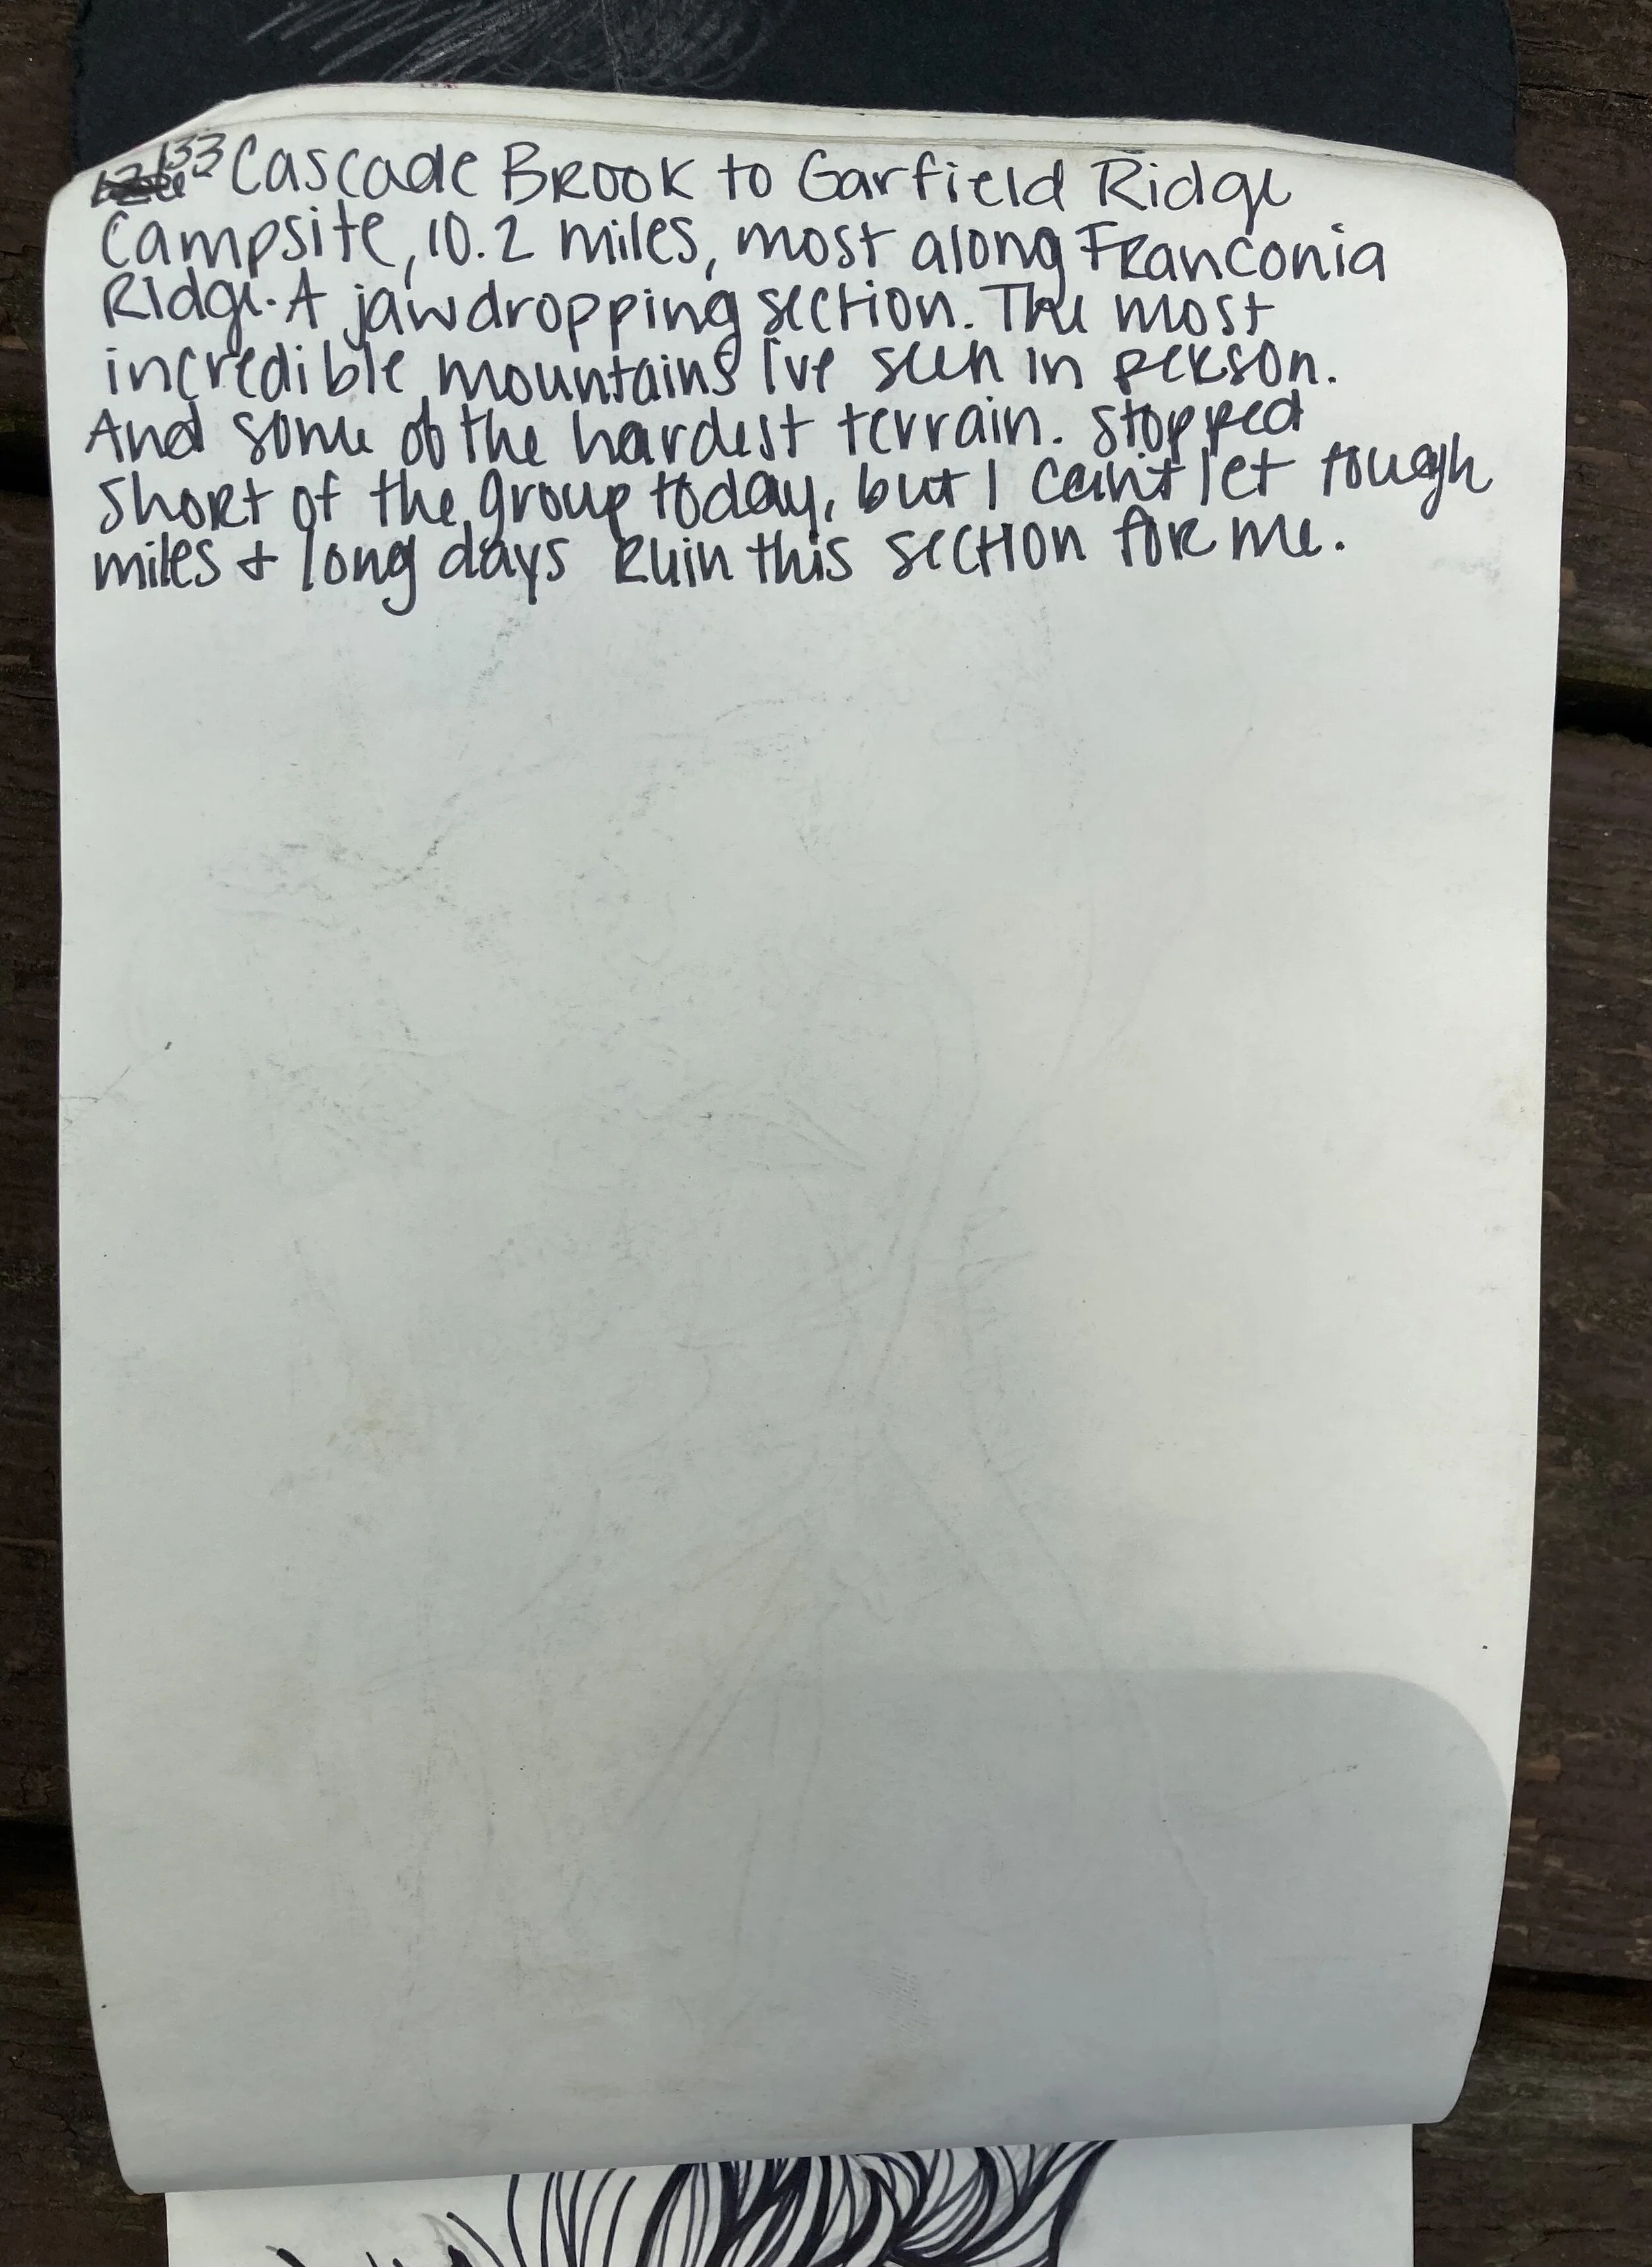 133 Cascade Brook to Garfield Ridge
Campsite, 10.2 miles, most along Franconia
Ridge. A jawdropping section. The most
incredible mountains I've seen in person.
And some of the hardest terrain. Stopped
short of the group today, but I can't let tough
miles + long days ruin this section for me.